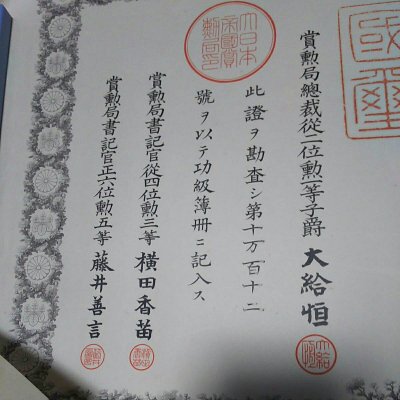 國璽
賞勲局總裁從二位勲一等子爵 大給恒
大給恒
大日本帝國賞勲局印
此證ヲ勘査シ第十万百十二
號ヲ以テ功級簿冊ニ記入ス
賞勲局書記官從四位勲三等 横田香苗
賞勲局書記官正六位勲五等 藤井善言